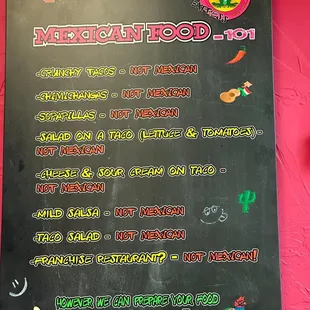 MEXICAN FOOD - 101
-CRUNCHY TACOS - NOT MEXICAN
-CHIMICHANGAS - NOT MEXICAN
-SOPAPILLAS - NOT MEXICAN
-SALAD ON A TACO (LETTUCE & TOMATOES) -
NOT MEXICAN
-CHEESE & SOUR CREAM ON TACO -
NOT MEXICAN
-MILD SALSA - NOT MEXICAN
-TACO SALAD - NOT MEXICAN
-FRANCHISE RESTAURANT? - NOT MEXICAN!
HOWEVER WE CAN PREPARE YOUR FOOD